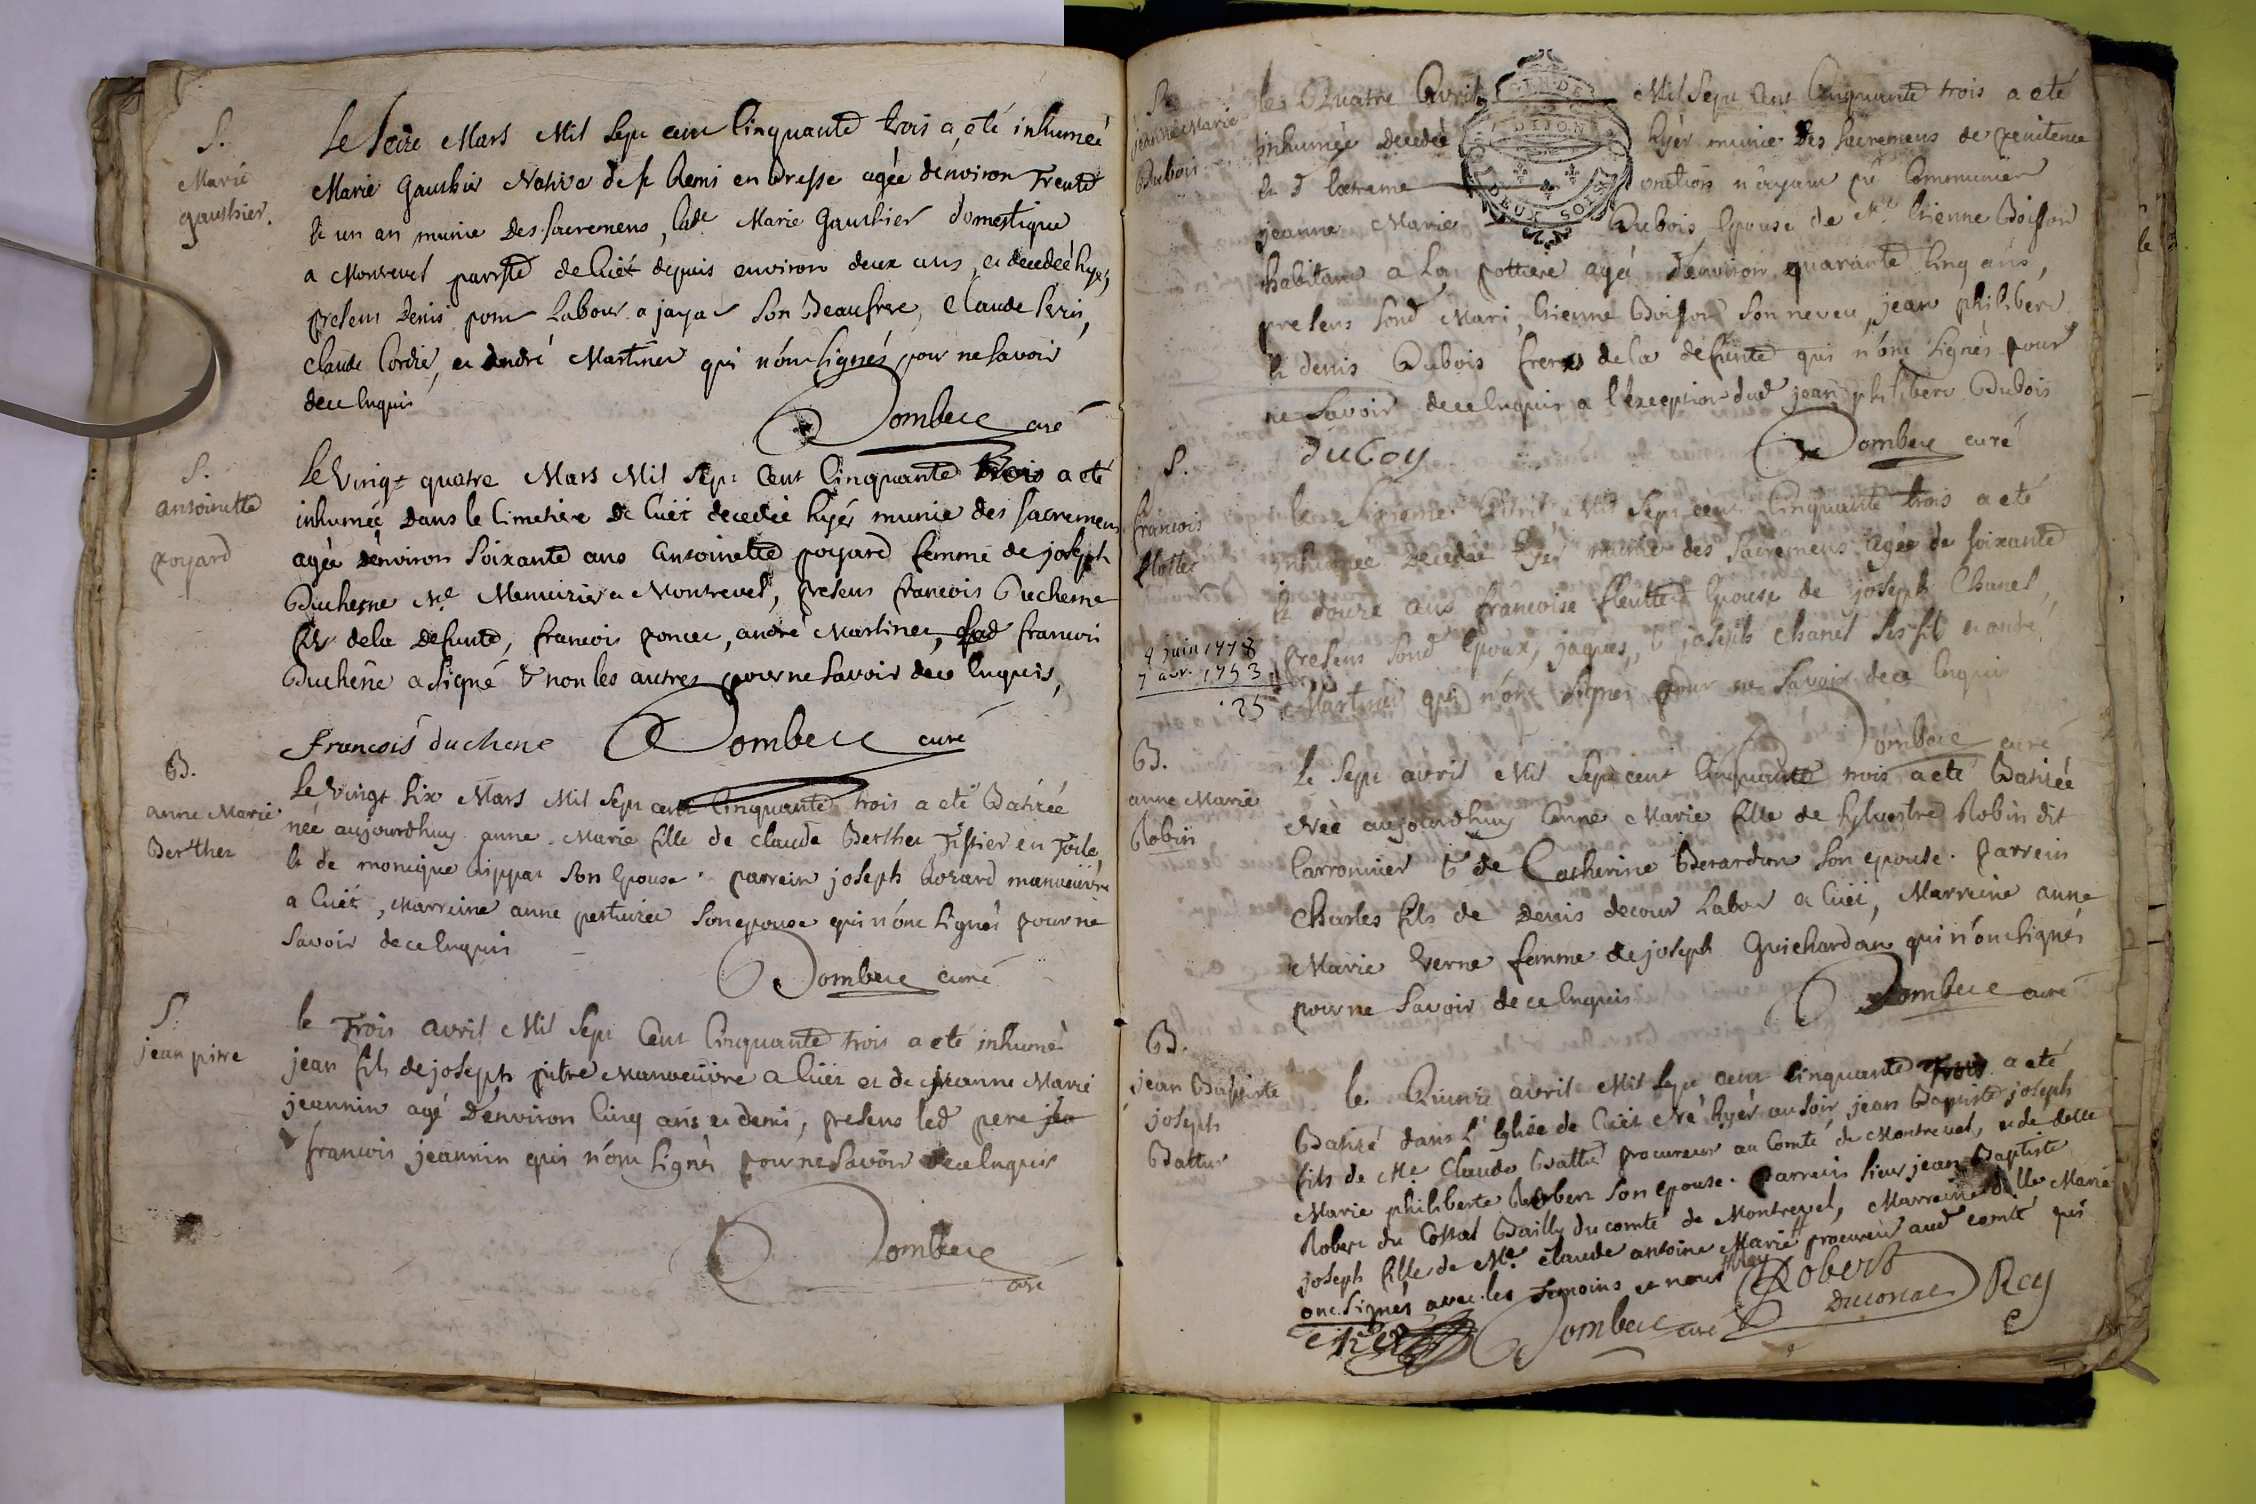 S.
Marie
gauthier.
Le seize Mars Mil sept cent Cinquante trois a été inhumeé
Marie Gauthier Native de st Remi en Bresse agée d'environ Trente
& un an munie des sacremens, lade Marie Gauthier domestique
a Montrevel parrsse de Cuët depuis environ deux ans, et decedeé hyer,
presens Denis pom Labour a jayac son Beaufrere, Claude
Claude Cordié, et André Martinet qui n'ont signés pour ne savoir
dece Enquis
Dombeie curé
S.
antoinette
poyard
Le vingt quatre Mars Mil sept Cent Cinquante trois a eté
inhumée dans le Cimetiere de Cuët decedée hyér munie des sacremens
agée d'environ soixante ans Antoinette poyard femme de joseph
Duchesne Me Menuizier a Montrevel, presens francois Duchesne
fils de la defunte, francois poncet, andré Martinet, francois
Duchêne a signé & non les autres pour ne savoir dece Enquis,
francois duchene Dombeie curé
B.
anne Marie
Berthet
Le vingt six Mars Mil sept cent Cinquante trois a eté Batizée
née aujourdhuy anne Marie fille de Claude Berthet Tissier en Toile,
& de monique Rippat son Epouse. parrein joseph Bozard manoeuvre
a Cuët, Marreine anne son epouse qui n'ont signés pour ne
savoir de ce Enquis
Dombeie curé
S.
jean pitre
le Trois avril Mil sept Cent Cinquante trois a eté inhumé
jean fils de joseph pitre Manoeuvre a Cuët et de jeanne Marie
jeannin agé d'environ Cinq ans et demi, presens led pere
francois jeannin qui n'ont signés pour ne savoir de ce Enquis
Dombeie
curé
S.
jeanne Marie
Dubois
le Quatre Avril Mil Sept Cent Cinquante trois a eté
inhumée decedée hyér munie des sacremens de penitence
& d'extreme onction n'ayant pû Communier
jeanne Marie Dubois Epouse de Me Etienne Boisson
habitant a La pottiere agé d'environ quarante Cinq ans,
presens sond Mari, Etienne Boisson son neveu, jean philibert
& denis Dubois freres de la defunte qui n'ont signés pour
ne savoir de ce Enquis a l'exception dud jean philibert Dubois
duboy Dombeie curé
S.
francois
flotte
4 juin 1778
7 avr. 1753
25
le sixieme Avril Mil Sept cent Cinquante trois a eté
inhumée decedée hyér munie des sacremens agée de soixante
& douze ans francoise fleutte Epouse de joseph Chanel,
presens sond Epoux, jaques, & joseph Chanel ses fils et andre
Martinet qui n'ont signés pour ne savoir de ce Enquis
Dombeie curé
B.
anne Marie
Robin
le Sept avril Mil Sept cent Cinquante trois a eté Batizée
Née aujourdhuy anne Marie fille de sylvestre Robin dit
Carronnier & de Catherine Berardan son epouse. parrein
Charles fils de Denis decour Labor a Cuët, Marreine anne
Marie verne femme de joseph Guichardan qui n'ont signés
pour ne savoir de ce Enquis Dombeie curé
B.
jean Baptiste
joseph
Battur
le Quinze avril Mil sept cent Cinquante Trois a eté
Batizé dans l'Eglise de Cuët né hyér au soir jean Baptiste joseph
fils de Me. Claude procureur au Comté de Montrevel, et de delle
Marie philiberte Robert son epouse. parrein sieur jean Baptiste
Robert du Bailly du comté de Montrevel, Marreine delle Marie
joseph fille de Me. Claude antoine Marie Rey procureur aud comté qui
ont signés avec les Temoins et nous
Robert
Duconat Rey
Dombeie curé